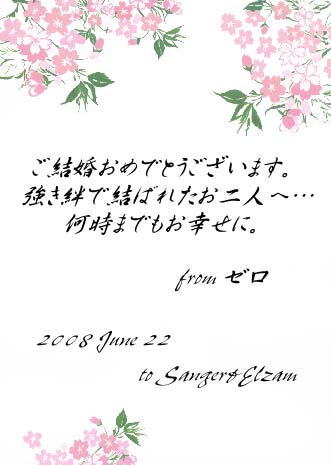 ご結婚おめでとうございます。
強き絆で結ばれたお二人へ…
何時までもお幸せに。
from ゼロ
2008 June 22
to Sanger&Elzam